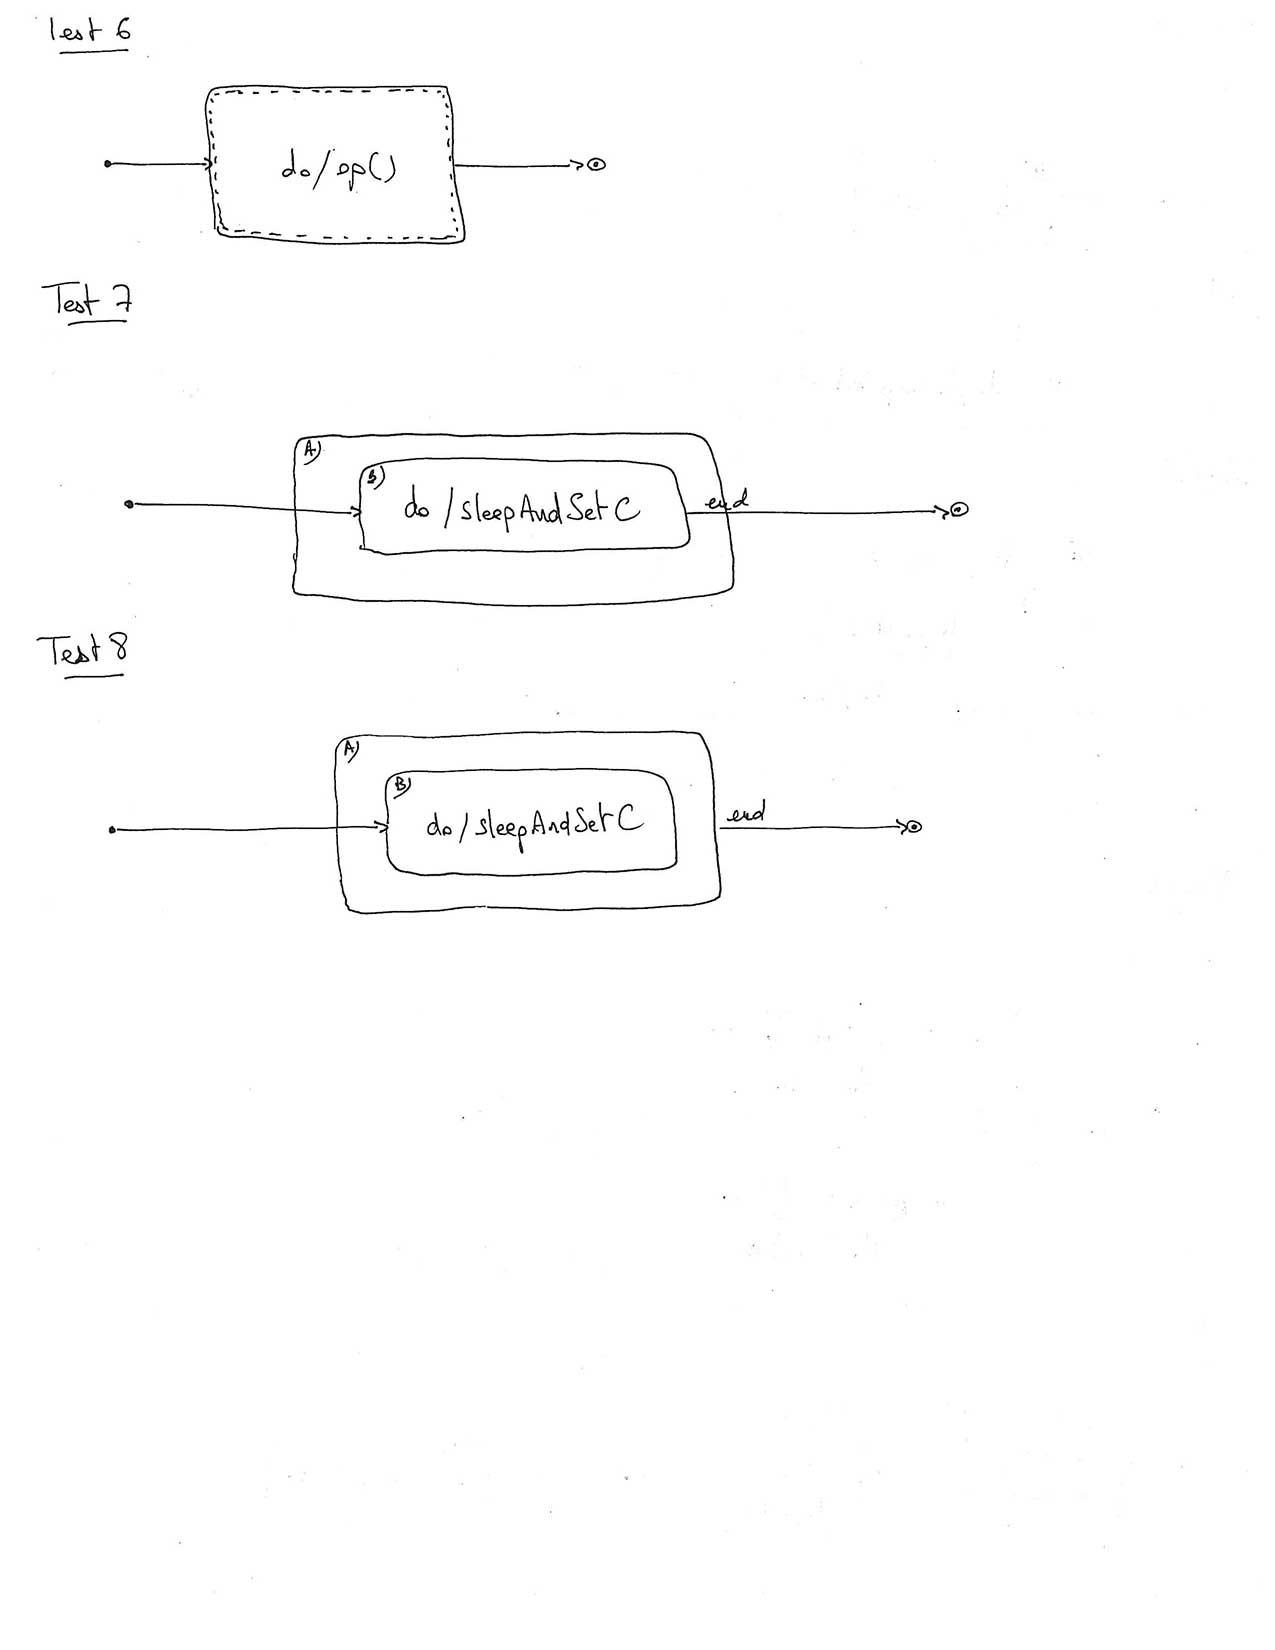 Test 6
do/op()
Test 7
A)
B)
do /sleepAndSetC
end
Test 8
A)
B)
do/sleepAndSetC
end